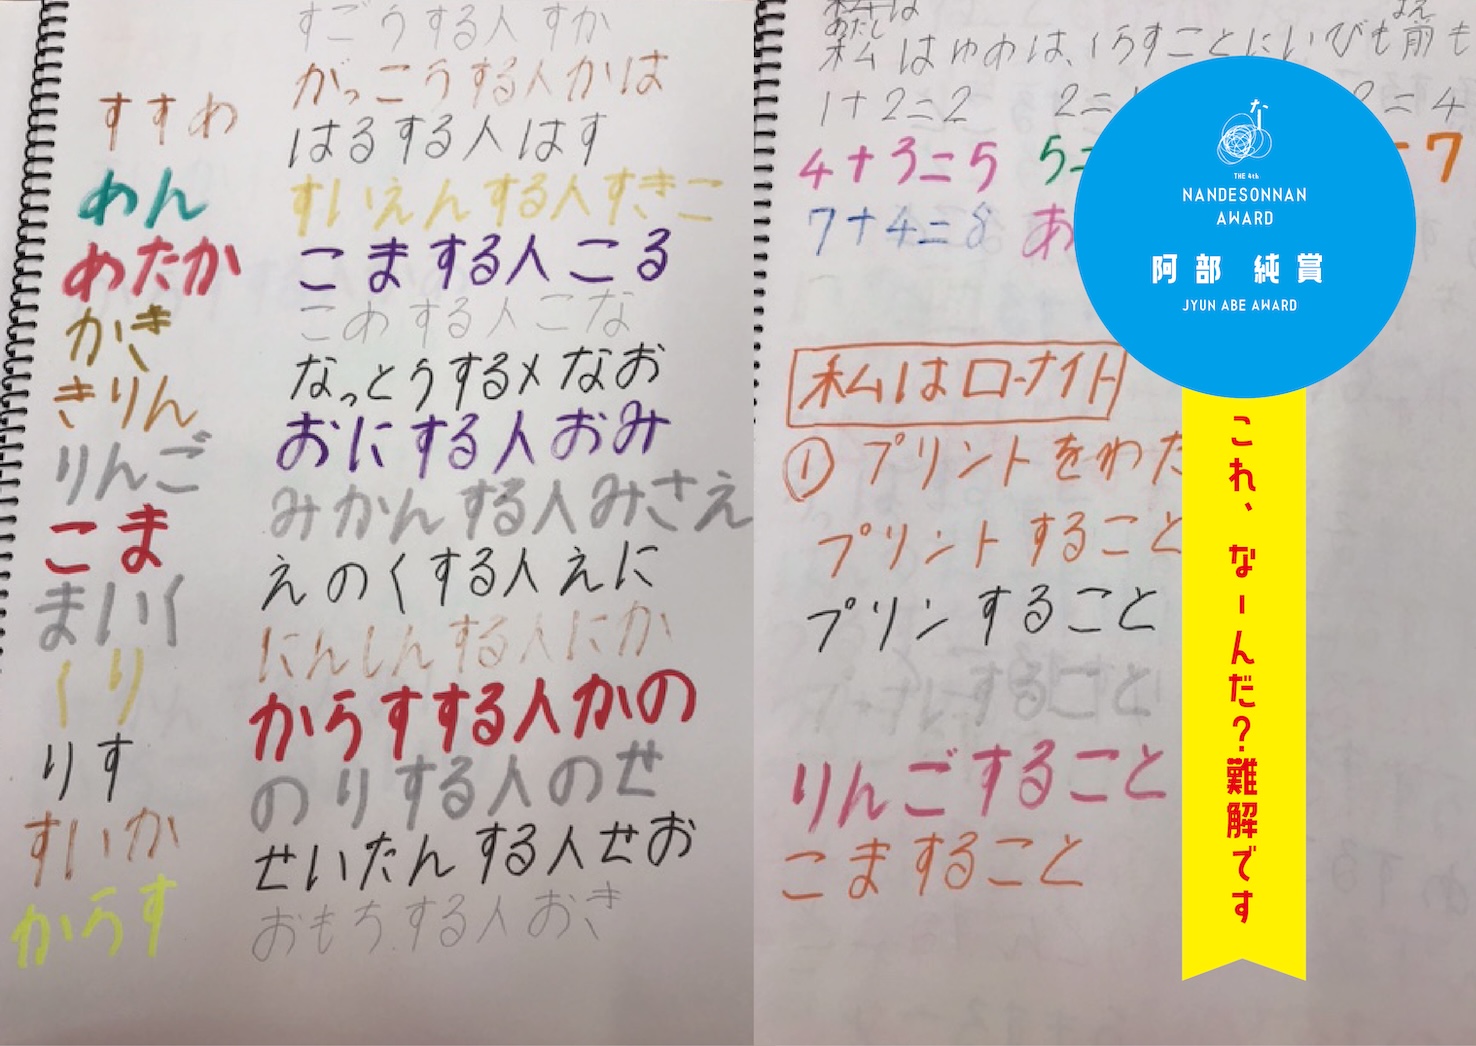 すすめ
めん
めたか
かき
きりん
りんご
こま
まいく
くり
りす
すいか
からす
すごうする人 すか
がっこうする人かは
はるする人 はす
すいえんする人すきこ
こまする人 こる
こめする人こな
なっとうするメ なお
おにする人 おみ
みかんする人みさえ
えのくする人 えに
にんしんする人にか
からすする人かの
のりする人のせ
せいたんする人せお
おもちする人 おき
私は
わたし
まえ
私はゆめは、くらすことにいびも前も
1+2=2 2= 2=4
4+3=5 5= =7
7+4=8 あ
私はローナイト
① プリントをわた
プリントすること
プリンすること
すること
りんごすること
こますること
な
THE 4th
NANDESONNAN
AWARD
阿部 純賞
JYUN ABE AWARD
これ、なーんだ?難解です